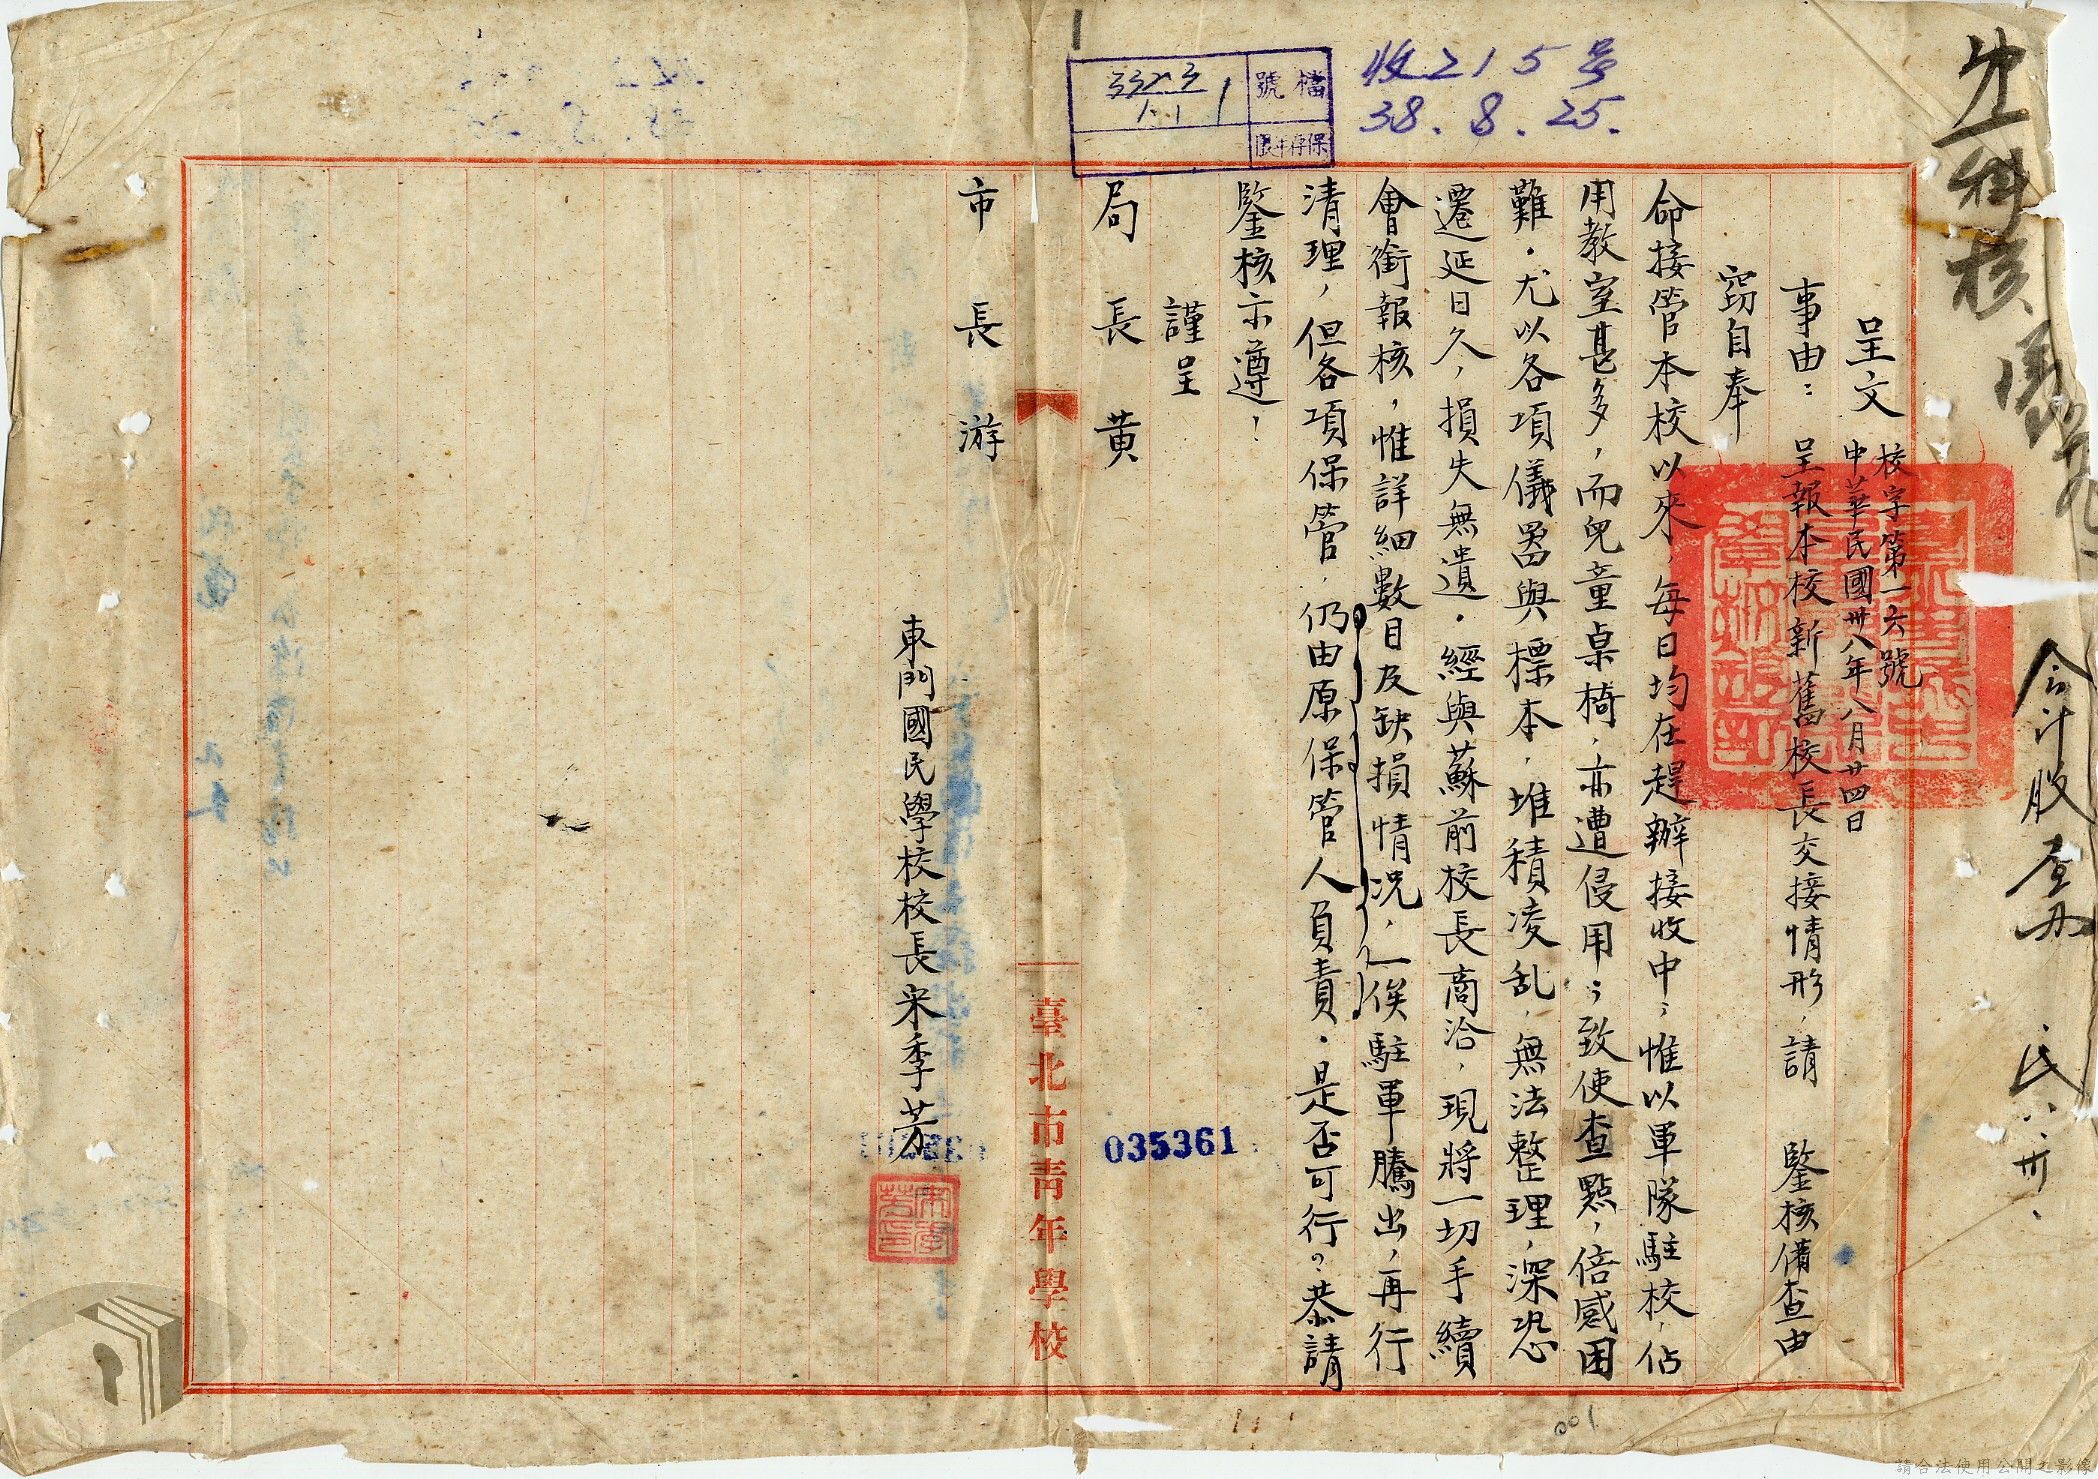 收215号
38.8.25.
檔號
保存年限
呈文
校字第一六號
中華民國卅八年八月廿四日
事由：呈報本校新舊校長交接情形，請　鑒核備查由
竊自奉
命接管本校以來，每日均在趕辦接收中；惟以軍隊駐校，佔
用教室甚多，而兒童桌椅，亦遭侵用；致使查點，倍感困
難。尤以各項儀器與標本，堆積凌乱，無法整理，深恐
遷延日久，損失無遺。經與蘇前校長商洽，現將一切手續
會銜報核，惟詳細數目及缺損情況，一俟駐軍騰出，再行
清理，但各項保管，仍由原保管人負責。是否可行？恭請
鑒核示遵！
謹呈
局長黄
市長游
東門國民學校校長宋季芳
035361
臺北市靑年學校
001
請合法使用公開之影像